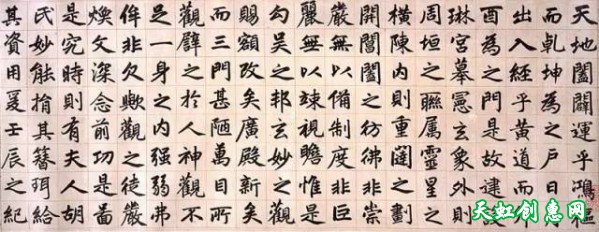 天地闔闢運乎鴻樞
而乹坤為之戶日月
出入經乎黃道而卯
酉為之門是故建設
琳宮摹憲玄象外則
周垣之聯属靈星之
橫陳内則重闥之劃
開閶闔之彷彿非崇
嚴無以備制度非巨
麗無以竦視瞻惟是
勾吳之邦玄妙之觀
賜額改矣廣殿新矣
而三門甚陋萬目所
觀譬之於人神觀不
足一身之内强弱弗
侔非欠歟觀之徒嚴
煥文深念前功是啚
是究時則有夫人胡
氏妙能捐其簪珥給
其資用爰壬辰之紀
天虹创惠网